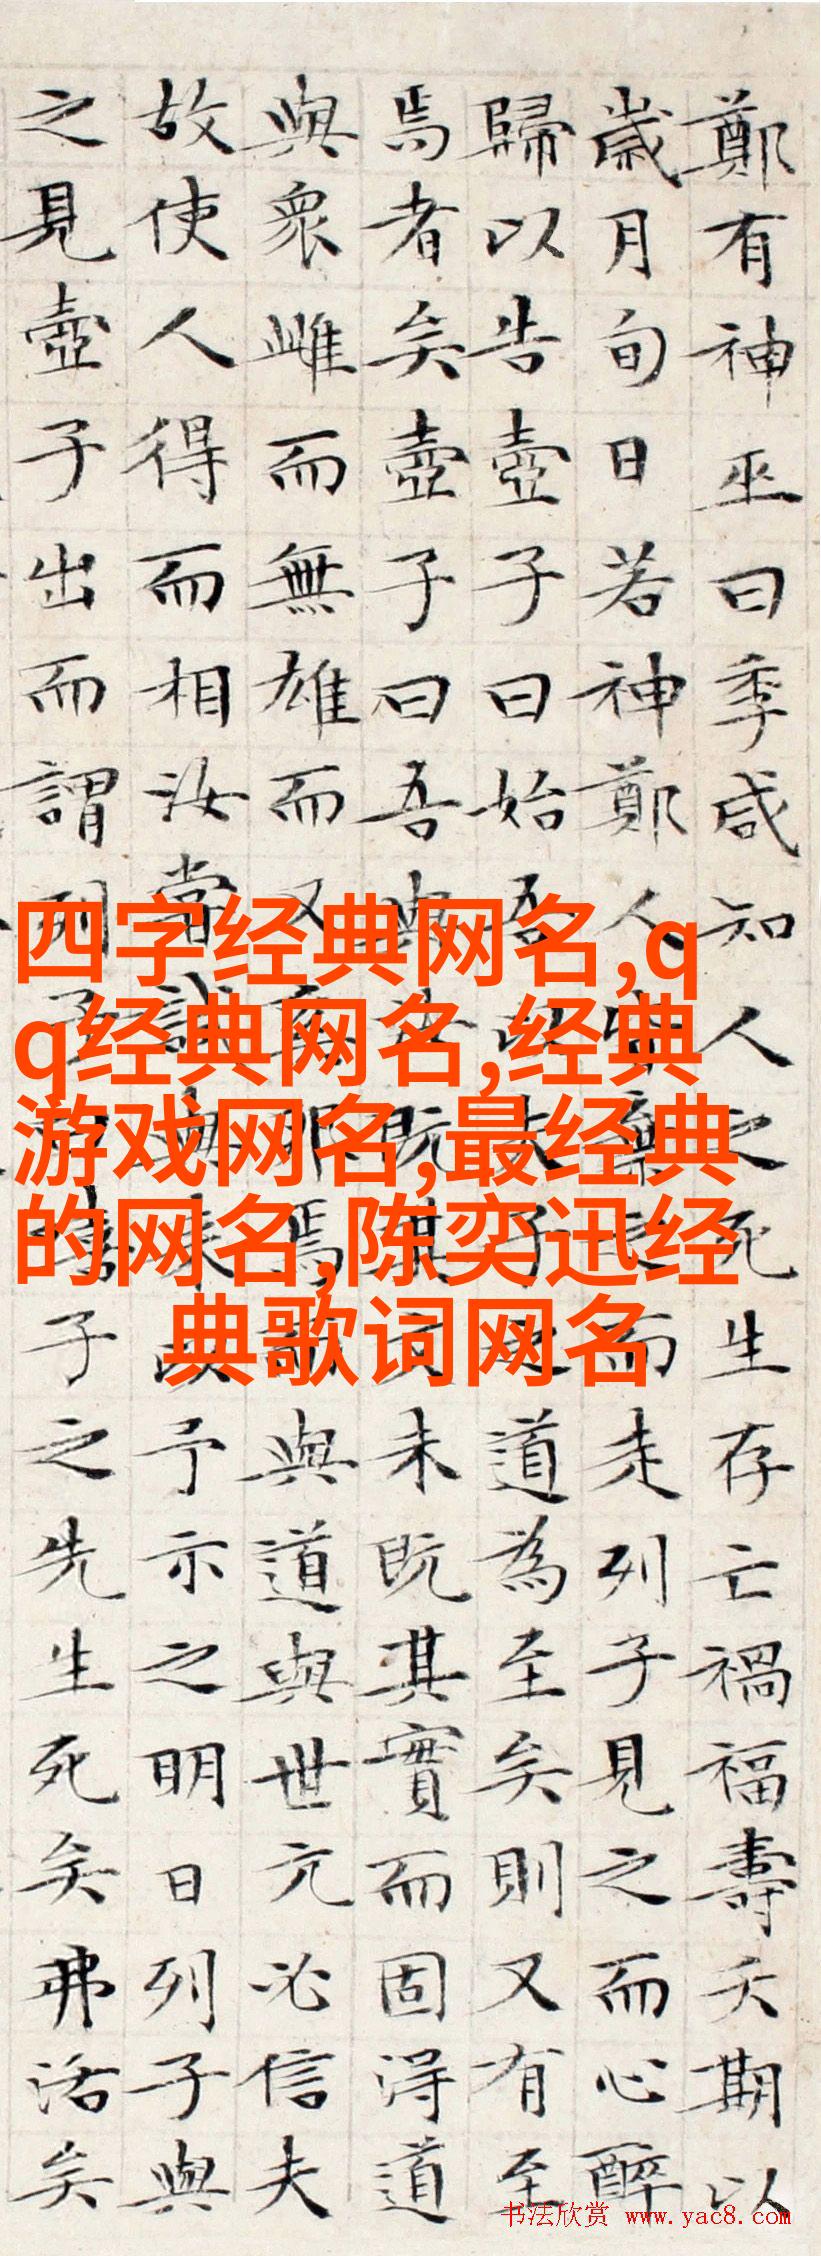 鄭有神巫曰季咸知人之死生存亡禍福壽夭期以
歲月旬日若神鄭人棄而走列子見之而心醉
歸以告壺子曰始吾以夫子之道為至矣則又有至
焉者矣壺子曰吾與汝既其文未既其實而固得道
與眾雌而無雄而又奚卵焉與道與世亢必信夫
故使人得而相汝嘗試與來以予示之明日列子與
之見壺子出而謂列子曰嘻子之先生死矣弗活矣
四字经典网名,q
q经典网名,经典
游戏网名,最经典
的网名,陈奕迅经
典歌词网名
书法欣赏 www.yac8.com